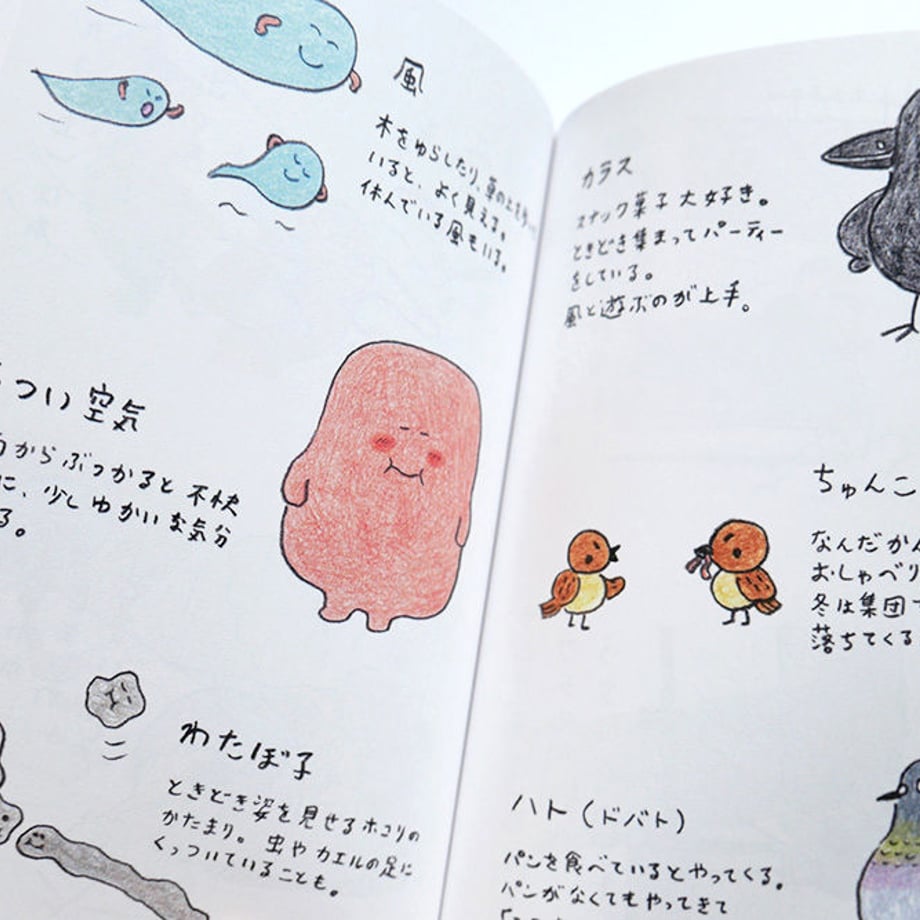 風
木をゆらしたり、草の上を
いると、よく見える。
休んでいる風もいる。
つい空気
からぶつかると不快
に、少しゆかいな気分
る。
わたぼ子
ときどき姿を見せるホコリの
かたまり。虫やカエルの足に
くっついていることも。
カラス
スナック菓子大好き。
ときどき集まってパーティー
をしている。
風と遊ぶのが上手。
ちゅんこ
なんだかん
おしゃべり
冬は集団で
落ちてくる
ハト(ドバト)
パンを食べているとやってくる。
パンがなくてもやってきて